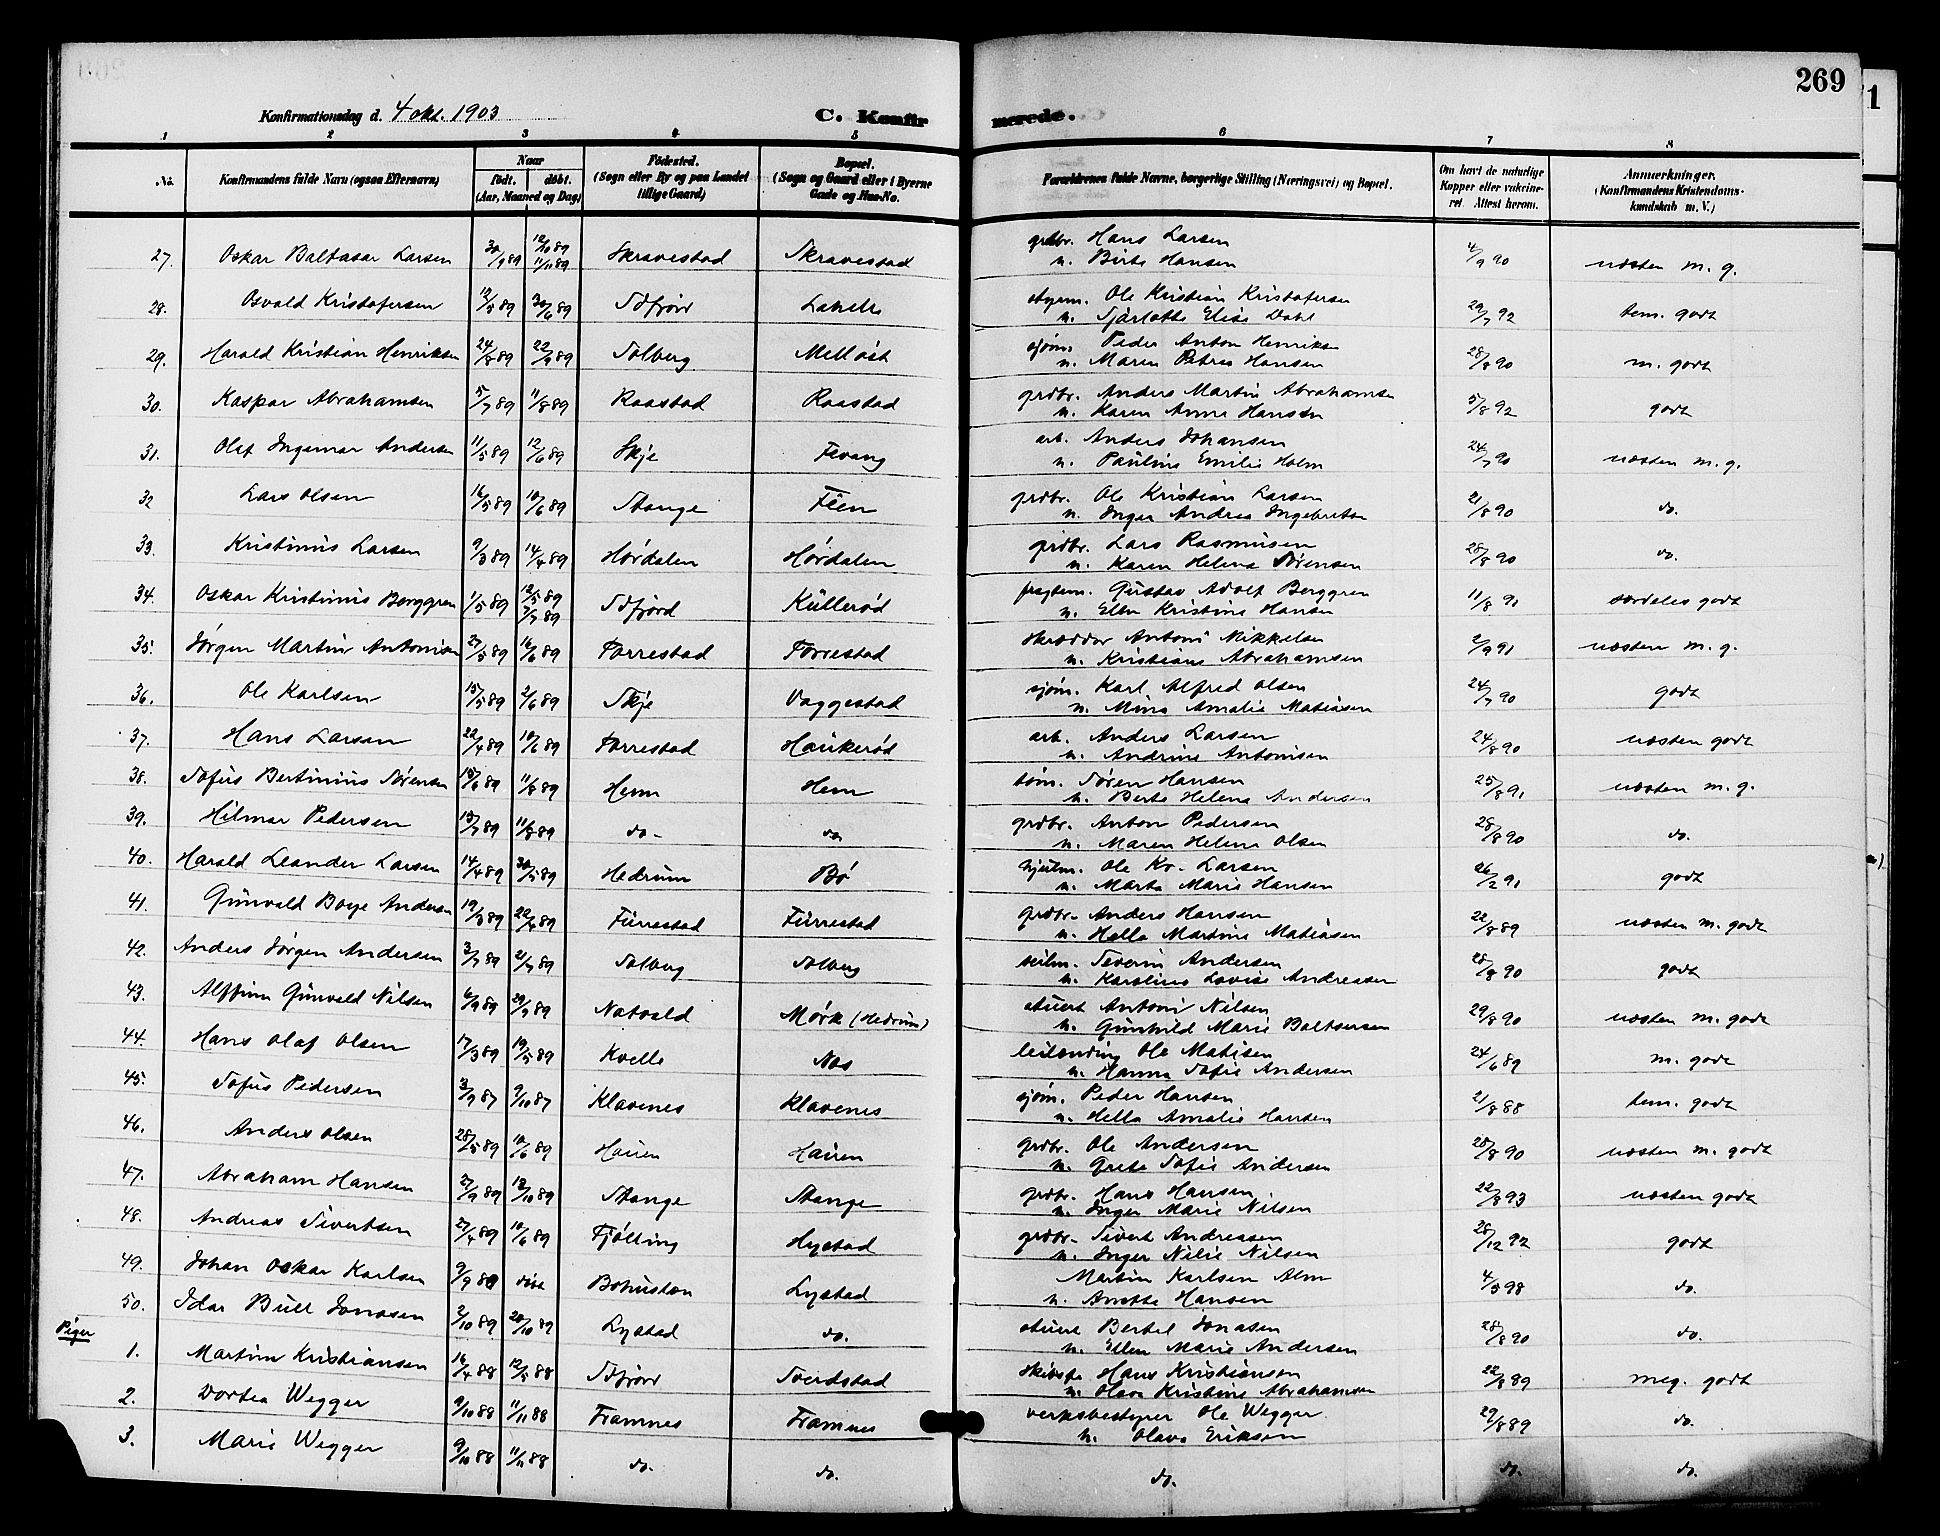 269
1
Konfirmationsdag d. 4 okt. 1903
C. Konfir
merede.
1 2 3 4 5 6 7 8
No.
Konfirmandens fulde Navn (ogsaa Efternavn)
Naar
født. døbt.
(Aar, Maaned og Dag)
Fødested.
(Sogn eller By og paa Landet
tillige Gaard)
Bopæl.
(Sogn og Gaard eller i Byerne
Gade og Hus-No.
Forældrenes fulde Navne, borgerlige Stilling (Næringsvei) og Bopæl.
Om havt de naturlige
Kopper eller vakcine-
ret. Attest herom.
Anmærkninger.
(Konfirmandens Kristendoms-
kundskab m. V.)
27. Oskar Baltasar Larsen 30/9 89 12/10 89 11/11 89 Skravestad Skravestad grdbr. Hans Larsen 4/9 90 næsten m. g.
n. Birte Hansen
28. Osvald Kristofersen 12/5 89 30/6 89 Sdfjord Ole Kristian Kristofersen 29/7 92 tem. godt
n. Sjarlotte Elise Dahl
29. Harald Kristian Henriksen 24/8 89 22/9 89 Solberg Melløst sjøm. Peder Anton Henriksen 28/8 90 m. godt
n. Maren Petrea Hansen
30. Kaspar Abrahamsen 5/7 89 11/8 89 Raastad Raastad grdbr. Anders Martin Abrahamsen 5/8 92 godt
n. Karen Anne Hansen
31. Olaf Ingemar Andersen 11/5 89 12/6 89 Skje Fevang arb. Anders Johansen 24/7 90 næsten m. g.
n. Pauline Emilie Holm
32 Lars Olsen 16/5 89 10/6 89 Stange Feen grdbr. Ole Kristian Larsen 21/8 90 do.
n. Inger Andrea Ingebretsen
33. Kristinus Larsen 9/3 89 14/4 89 Hørdalen Hørdalen grdbr. Lars Rasmusen 28/8 90 do.
n. Karen Helena Sørensen
34. Oskar Kristinus Berggren 1/5 89 12/5 89 2/7 89 Sdfjord Kullerød fragtem. Gustav Adolf Berggren 11/8 91 særdeles godt
n. Ellen Kristine Hansen
35. Jørgen Martin Antonisen 27/5 89 16/6 89 Torrestad Torrestad skrædder Antoni Mikkelsen 2/9 91 næsten m. g.
n. Kristiane Abrahamsen
36. Ole Karlsen 15/5 89 2/6 89 Skje Vaggestad sjøm. Karl Alfred Olsen 24/7 90 godt
n. Mina Amalie Matiasen
37. Hans Larsen 22/4 89 10/6 89 Torrestad Haukerød arb. Anders Larsen 24/8 90 næsten godt
n. Andrine Antonisen
38. Sofus Bertinius Sørensen 15/6 89 11/8 89 Hem Hem tøm. Søren Hansen 25/8 91 næsten m. g.
n. Berte Helena Andersen
39. Hilmar Pedersen 13/7 89 11/8 89 do- do grdbr. Anton Pedersen 28/8 90 do.
n. Maren Helene Olsen
40. Harald Leander Larsen 14/4 89 30/5 89 Hedrum Bø hjulm. Ole Kr. Larsen 26/2 91 godt
n. Marta Marie Hansen
41. Gunvald Boye Andersen 19/3 89 Furrestad Furrestad grdbr. Anders Hansen 22/8 89 næsten m. godt
n. Hella Martine Matiasen
42. Anders Jørgen Andersen 3/7 89 21/7 89 Solberg Solberg seilm. Severin Andersen 28/8 90 godt
n. Karoline Lovise Andreasen
43. Alffinn Gunvald Nilsen 6/9 89 29/9 89 Natvald Mørk (Hedrum) stuert Antoni Nilsen 29/8 90 næsten m. godt
n. Gunhild Marie Baltsersen
44. Hans Olaf Olsen 17/3 89 19/5 89 Kvelle Nes leilending Ole Matisen 24/6 89 m. godt
n. Hanna Sofie Andersen
45. Sofus Pedersen 3/9 87 9/10 87 Klavenes Klavenes sjøm. Peder Hansen 21/8 88 tem. godt
n. Hella Amalie Hansen
46. Anders Olsen 28/5 89 10/6 89 Hauen Hauen grdbr. Ole Andersen 28/8 90 næsten m. godt
n. Grete Sofie Andersen
47. Abraham Hansen 27/9 89 13/10 89 Stange Stange grdbr. Hans Hansen 22/8 93 næsten godt
n. Inger Marie Nilsen
48. Andreas Sivertsen 27/4 89 10/6 89 Fjølling Hystad grdbr. Sivert Andreasen 28/12 92 godt
n. Inger Nilie Nilsen
49. Johan Oskar Karlsen Bohuslæn Lystad Martin Karlsen Alm 4/3 98 do.
n. Anette Hansen
50. Idar Bull Jonasen 2/10 89 20/10 89 Lystad do. stuert Bertel Jonasen 28/8 90 do.
n. Ellen Marie Andersen
Piger
1. Martine Kristiansen 16/4 88 12/5 88 Sdfjord Tverdstad Hans Kristiansen 22/8 89 meg. godt
n. Olava Kristine Abrahamsen
2. Dortea Wegger 9/10 88 11/11 88 Framnes Framnes verksbestyrer Ole Wegger 29/8 89 do.
n. Olava Eriksen
3. Marie Wegger 9/10 88 11/11 88 do. do. do. do. do.